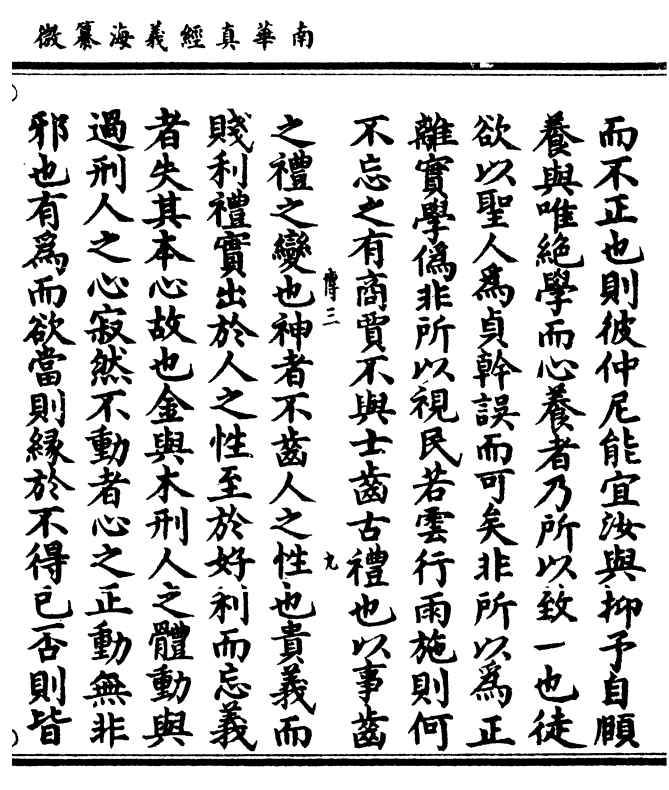 南華真經義海纂微
而不正也則彼仲尼能宜汝與抑予自頤
養與唯絕學而心養者乃所以致一也徒
欲以聖人爲貞幹誤而可矣非所以爲正
離實學僞非所以視民若雲行雨施則何
不忘之有商賈不與士齒古禮也以事齒
傳三 九
之禮之變也神者不齒人之性也貴義而
賤利禮實出於人之性至於好利而忘義
者失其本心故也金與木刑人之體動與
過刑人之心寂然不動者心之正動無非
邪也有爲而欲當則緣於不得已否則皆